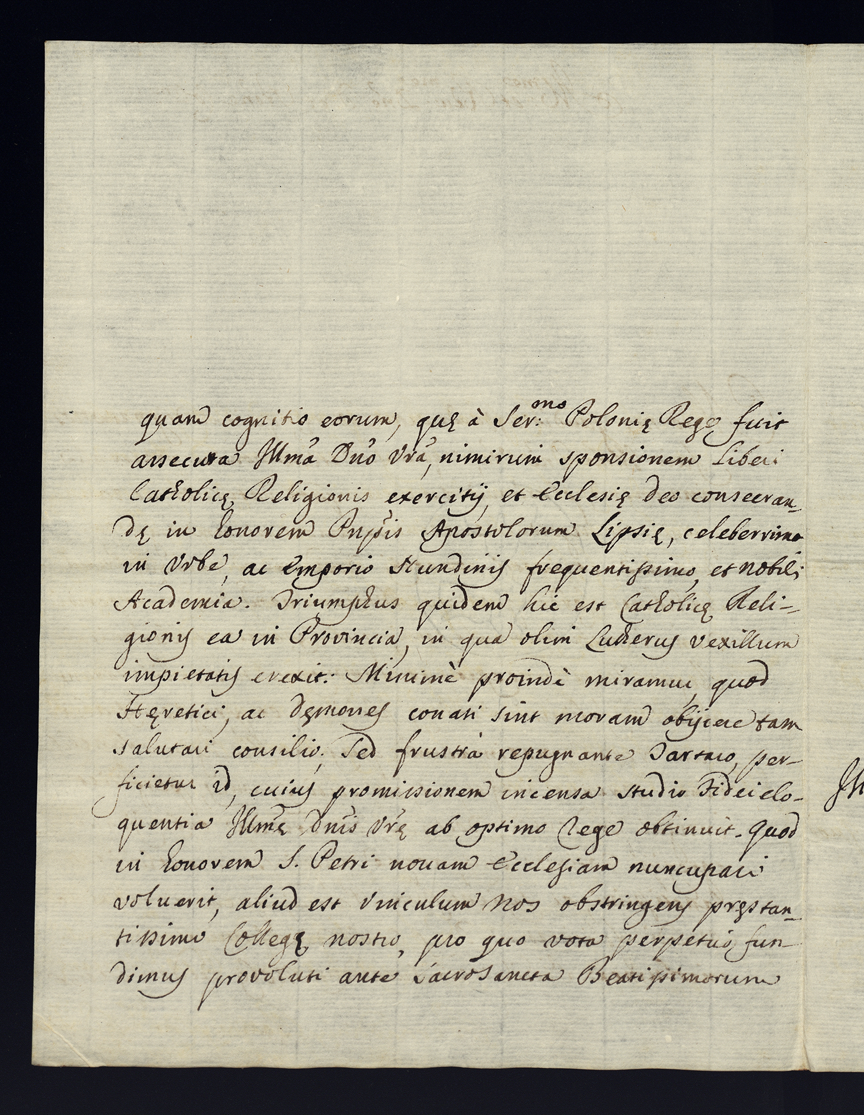 quam cognitio eorum, quę à Ser:mo Polonię Rege fuit
assecuta Illma Dnõ Vrã, nimirum sponsionem liberi
Catholicę Religionis exercitij, et Ecclesię Deo consecran-
dę in honorem Apostolorum Lipsię, celeberrima
in Vrbe, ac Emporio Nundinis frequentissimo, et nobili
Academia. Triumphus quidem hic est Catholicę Reli-
gionis ea in Provincia, in qua olim Lutherus vexillum
impietatis erexit: Minimè proindè miramur, quod
Hęretici, ac dęmones conati sint moram obijcere tam
salutari consilio; Sed frustrà repugnante Tartaro, per-
ficietur id, cuius promissionem incensa studio Fidei elo-
quentia Illmę Dnis Vrę ab optimo Rege obtinuit. Quod
in honorem S. Petri novam Ecclesiam nuncupari
voluerit, aliud est vinculum nos obstringens pręstan-
tissimo Collegę nostro, pro quo vota perpetuò fun-
dimus provoluti ante Sacrosancta Beatissimorum
Ill